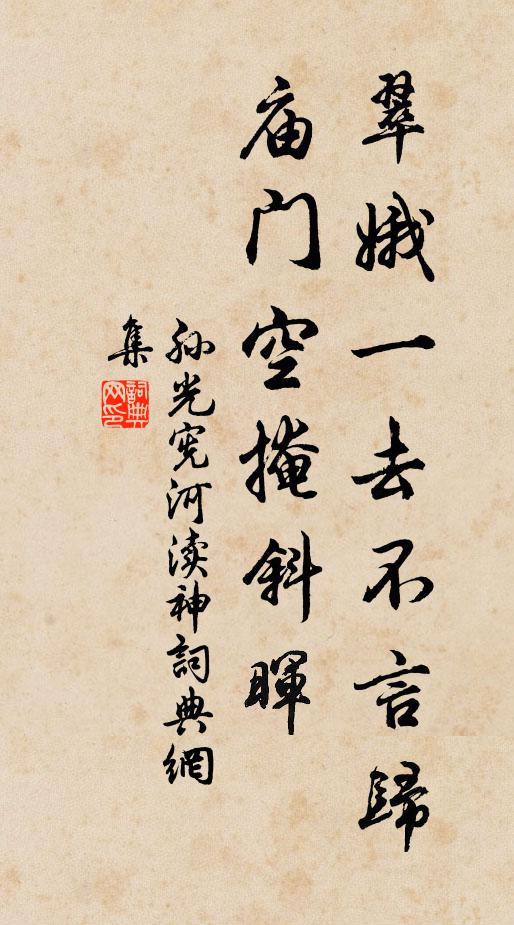 翠娥一去不言歸
庙门空掩斜暉
孙光宪河渎神詞典網
集
詞典网印